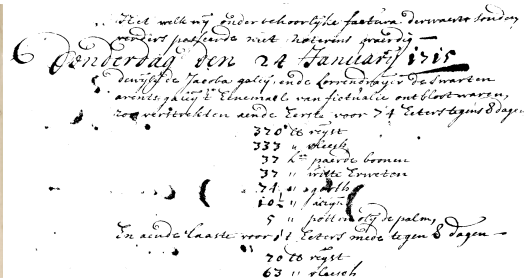 Het welk wij onder behoorlijke factura derwaerts sonden,
verders passeerde niet noterens waerdig —
Donderdag den 24 Januarij 1715
dewijl de Jacoba galij, ende Lorrendraijer de swarten
arents galij 't Eenemael van fictualie ontbloot waren,
zoo verstrekten aende Eerste voor 74 Eeters tegens 8 dagen
370 lb rijst
333 " vleesch
37 paerde boonen
37 " witte Erweten
74 " gorth
10½ "
5 " potten olij de palm,
En aende laaste voor Eeters mede tegen 8 dagen —
70 lb rijst
63 " vleesch